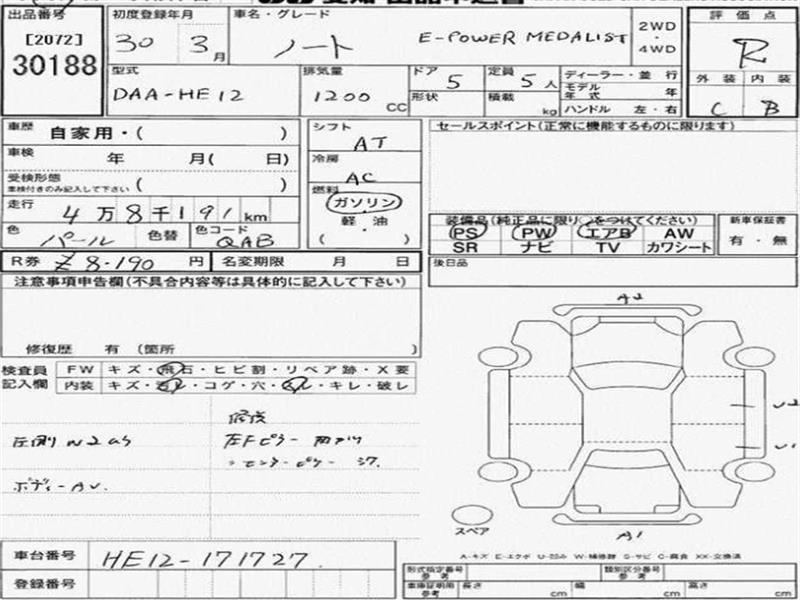 出品番号 初度登録年月 車名・グレード 評価点
[2072] 30 3月 ノート E-POWER MEDALIST 2WD・4WD R
30188 型式 排気量 ドア 5 定員 5人 ディーラー・並行 外装 内装
DAA-HE12 1200 CC 形状 積載 kg モデル年式 年 C B
ハンドル 左・右
車歴 自家用・( ) シフト AT セールスポイント(正常に機能するものに限ります)
車検 年 月( 日) 冷房 AC
受検形態 ( )
車検付きのみ記入して下さい
燃料 ガソリン
走行 4万8千191km 軽・油
色 パール 色替 色コード QAB ( )
装備品(純正品に限り○をつけてください) 新車保証書
PS PW エアB AW 有・無
SR ナビ TV カワシート
R券 8.190円 名変期限 月 日 後日品
注意事項申告欄(不具合内容等は具体的に記入して下さい)
修復歴 有 (箇所 )
検査員 FW キズ・飛石・ヒビ割・リペア跡・X要
記入欄 内装 キズ・ ・コゲ・穴・ ・キレ・破レ
A2
修復
左Fピラー
ボディーAU.
U2
U1
スペア
A1
A-キズ E-エクボ U-凹ミ W-補修跡 S-サビ C-腐食 XX-交換済
車台番号 HE12-171727
登録番号
形式指定番号 参考 類別区分番号 参考
車庫証明用 参考 長さ cm 幅 cm 高さ cm